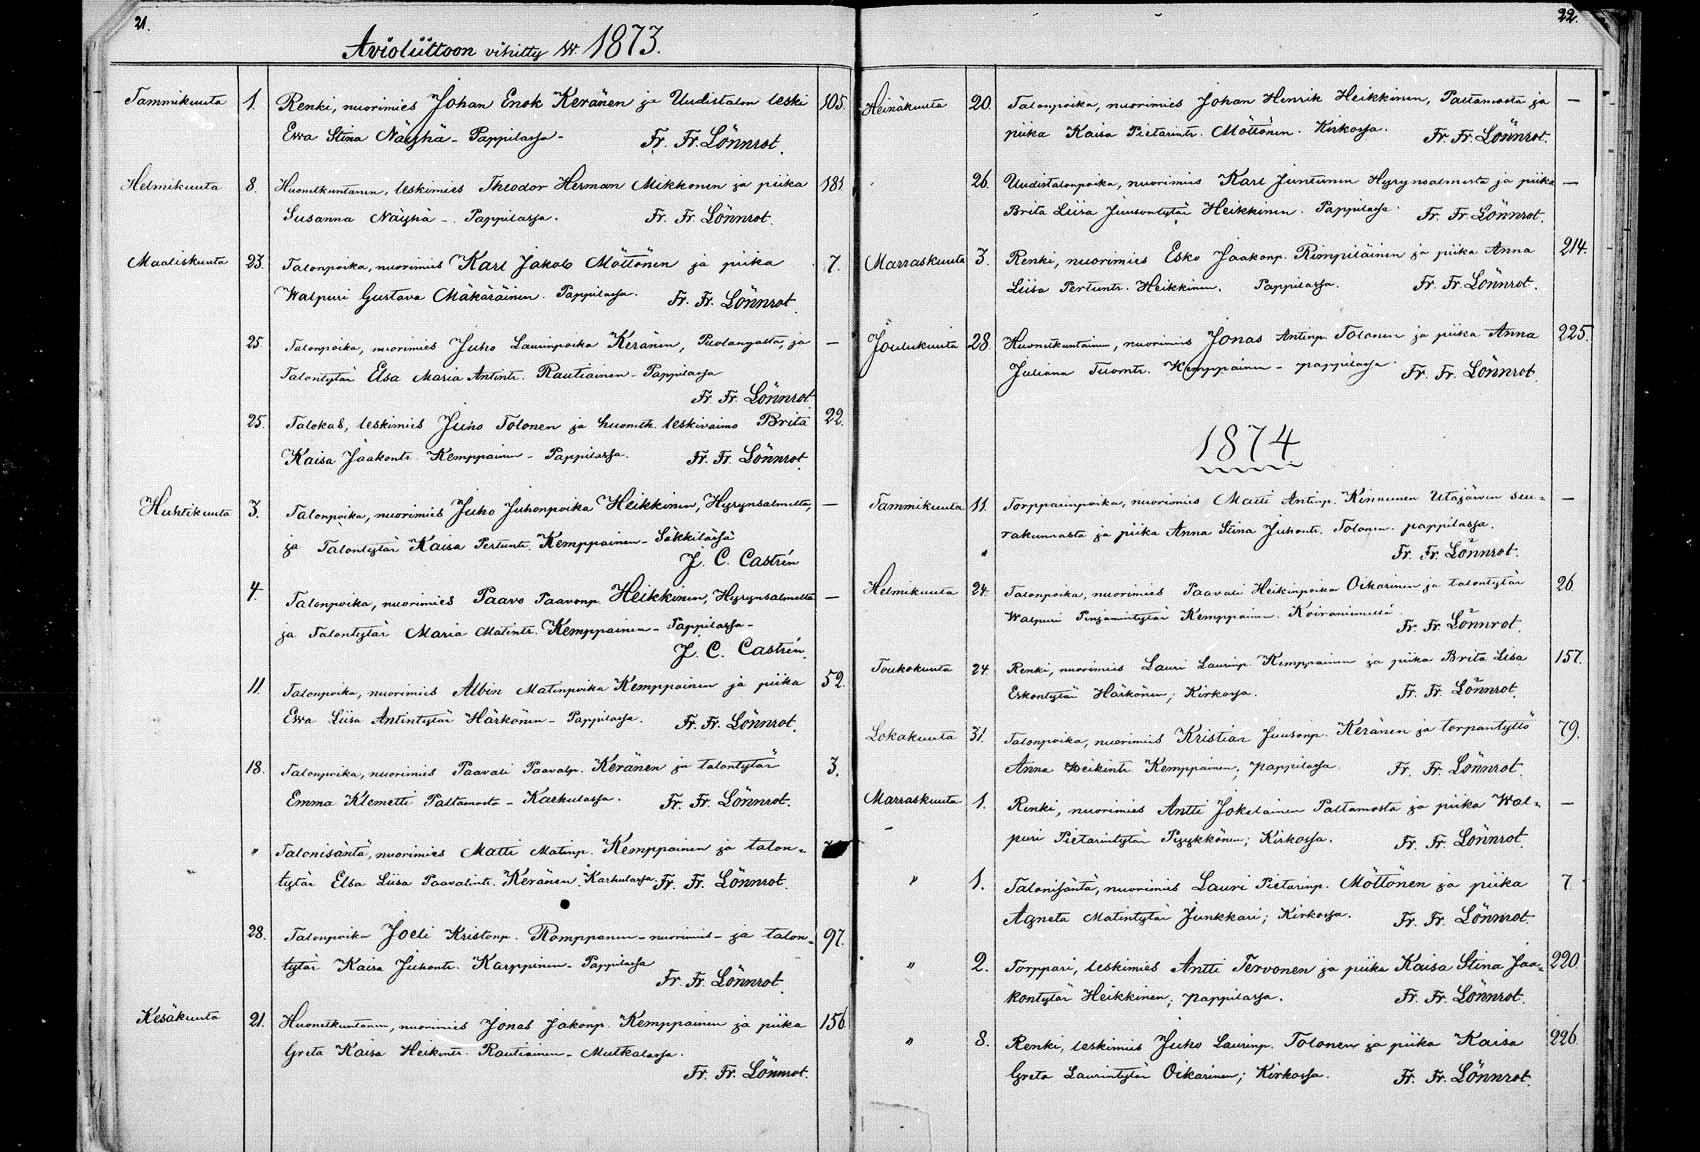 21.
Avioliittoon vihitty w. 1873.
Tammikuuta 1. Renki, nuorimies Johan Enok Keränen ja Uudistalon leski 105.
Ewa Stina Näyhä - Pappilassa - Fr. Fr. Lönnrot.
Helmikuuta 8. Huonetkuntanen, leskimies Theodor Herman Mikkonen ja piika 181
Susanna Näyhä - Pappilassa. Fr. Fr. Lönnrot.
Maaliskuuta 23. Talonpoika, nuorimies Karl Jakob Möttönen ja piika 7.
Walpuri Gustava Mäkäräinen. Pappilassa. Fr. Fr. Lönnrot.
25. Talonpoika, nuorimies Juho Laurinpoika Keränen, Puolangalta, ja —
Talontytär Elsa Maria Antintr. Rautiainen - Pappilassa
Fr. Fr. Lönnrot
25. Talokas, leskimies Juho Tolonen ja huoneth. leskivaimo Brita 22.
Kaisa Jaakontr. Kemppainen - Pappilassa. Fr. Fr. Lönnrot.
Huhtikuuta 3. Talonpoika, nuorimies Juho Juhonpoika Heikkinen, Hyrynsalmelta, —
ja Talontytär Kaisa Pertuntr. Kemppainen - Säkkilässä
J. C. Castrén
4. Talonpoika, nuorimies Paavo Paavonp. Heikkinen, Hyrynsalmelta —
ja Talontytär Maria Matintr. Kemppainen - Pappilassa -
J. C. Castrén.
11. Talonpoika, nuorimies Albin Matinpoika Kemppainen ja piika 52.
Ewa Liisa Antintytär Härkönen - Pappilassa. Fr. Fr. Lönnrot.
18. Talonpoika, nuorimies Paavali Paavalp. Keränen ja talontytär 3.
Emma Klemetti Paltamosta - Karhulassa. Fr. Fr. Lönnrot.
" Talonisäntä, nuorimies Matti Matinp. Kemppainen ja talon=
tytär Elsa Liisa Paavalintr. Keränen. Karhulassa. Fr. Fr. Lönnrot.
28. Talonpoika Joeli Kristonp. Romppanen - nuorimies - ja talon= 97.
tytär Kaisa Juhontr. Karppinen - Pappilassa
Fr. Fr. Lönnrot.
Kesäkuuta 21. Huonetkuntanen, nuorimies Jonas Jakonp. Kemppainen ja piika 156
Greta Kaisa Heikintr. Rautiainen - Mutkalassa.
Fr. Fr. Lönnrot.
22.
Heinäkuuta 20. Talonpoika, nuorimies Johan Henrik Heikkinen, Paltamosta ja —
piika Kaisa Pietarintr. Möttönen. Kirkossa. Fr. Fr. Lönnrot.
26. Uudistalonpoika, nuorimies Karl Juntunen Hyrynsalmesta ja piika —
Brita Liisa Juusontytär Heikkinen. Pappilassa. Fr. Fr. Lönnrot.
Marraskuuta 3. Renki, nuorimies Esko Jaakonp. Rimpiläinen ja piika Anna 214.
Liisa Pertuntr. Heikkinen. Pappilassa. Fr. Fr. Lönnrot.
Joulukuuta 28. Huonetkuntainen, nuorimies Jonas Antinp. Tolonen ja piika Anna 225.
Juliana Tuomtr. Kemppainen - pappilassa. Fr. Fr. Lönnrot.
1874
Tammikuuta 11. Torpparinpoika, nuorimies Matti Antinp. Kinnunen Utajärven seu= —
rakunnasta ja piika Anna Stina Juhontr. Tolonen. pappilassa.
Fr. Fr. Lönnrot.
Helmikuuta 24. Talonpoika, nuorimies Paavali Heikinpoika Oikarinen ja talontytär 26
Walpuri Penjamintytär Kemppainen. Koiraniemellä. Fr. Fr. Lönnrot.
Toukokuuta 24. Renki, nuorimies Lauri Laurinp. Kemppainen ja piika Brita Lisa 157.
Eskontytär Härkönen; Kirkossa. Fr. Fr. Lönnrot.
Lokakuuta 31. Talonpoika, nuorimies Kristian Juusonp. Keränen ja torpantyttö 79.
Anna Heikintr. Kemppainen; pappilassa. Fr. Fr. Lönnrot.
Marraskuuta 1. Renki, nuorimies Antti Jokelainen Paltamosta ja piika Wal= —
puri Pietarintytär Pyykkönen; Kirkossa. Fr. Fr. Lönnrot.
" 1. Talonisäntä, nuorimies Lauri Pietarinp. Möttönen ja piika 7
Agneta Matintytär Junkkari; Kirkossa. Fr. Fr. Lönnrot.
" 2. Torppari, leskimies Antti Tervonen ja piika Kaisa Stina Jaa= 220.
kontytär Heikkinen; pappilassa. Fr. Fr. Lönnrot.
" 8. Renki, leskimies Juho Laurinp. Tolonen ja piika Kaisa 226
Greta Laurintytär Oikarinen; Kirkossa. Fr. Fr. Lönnrot.